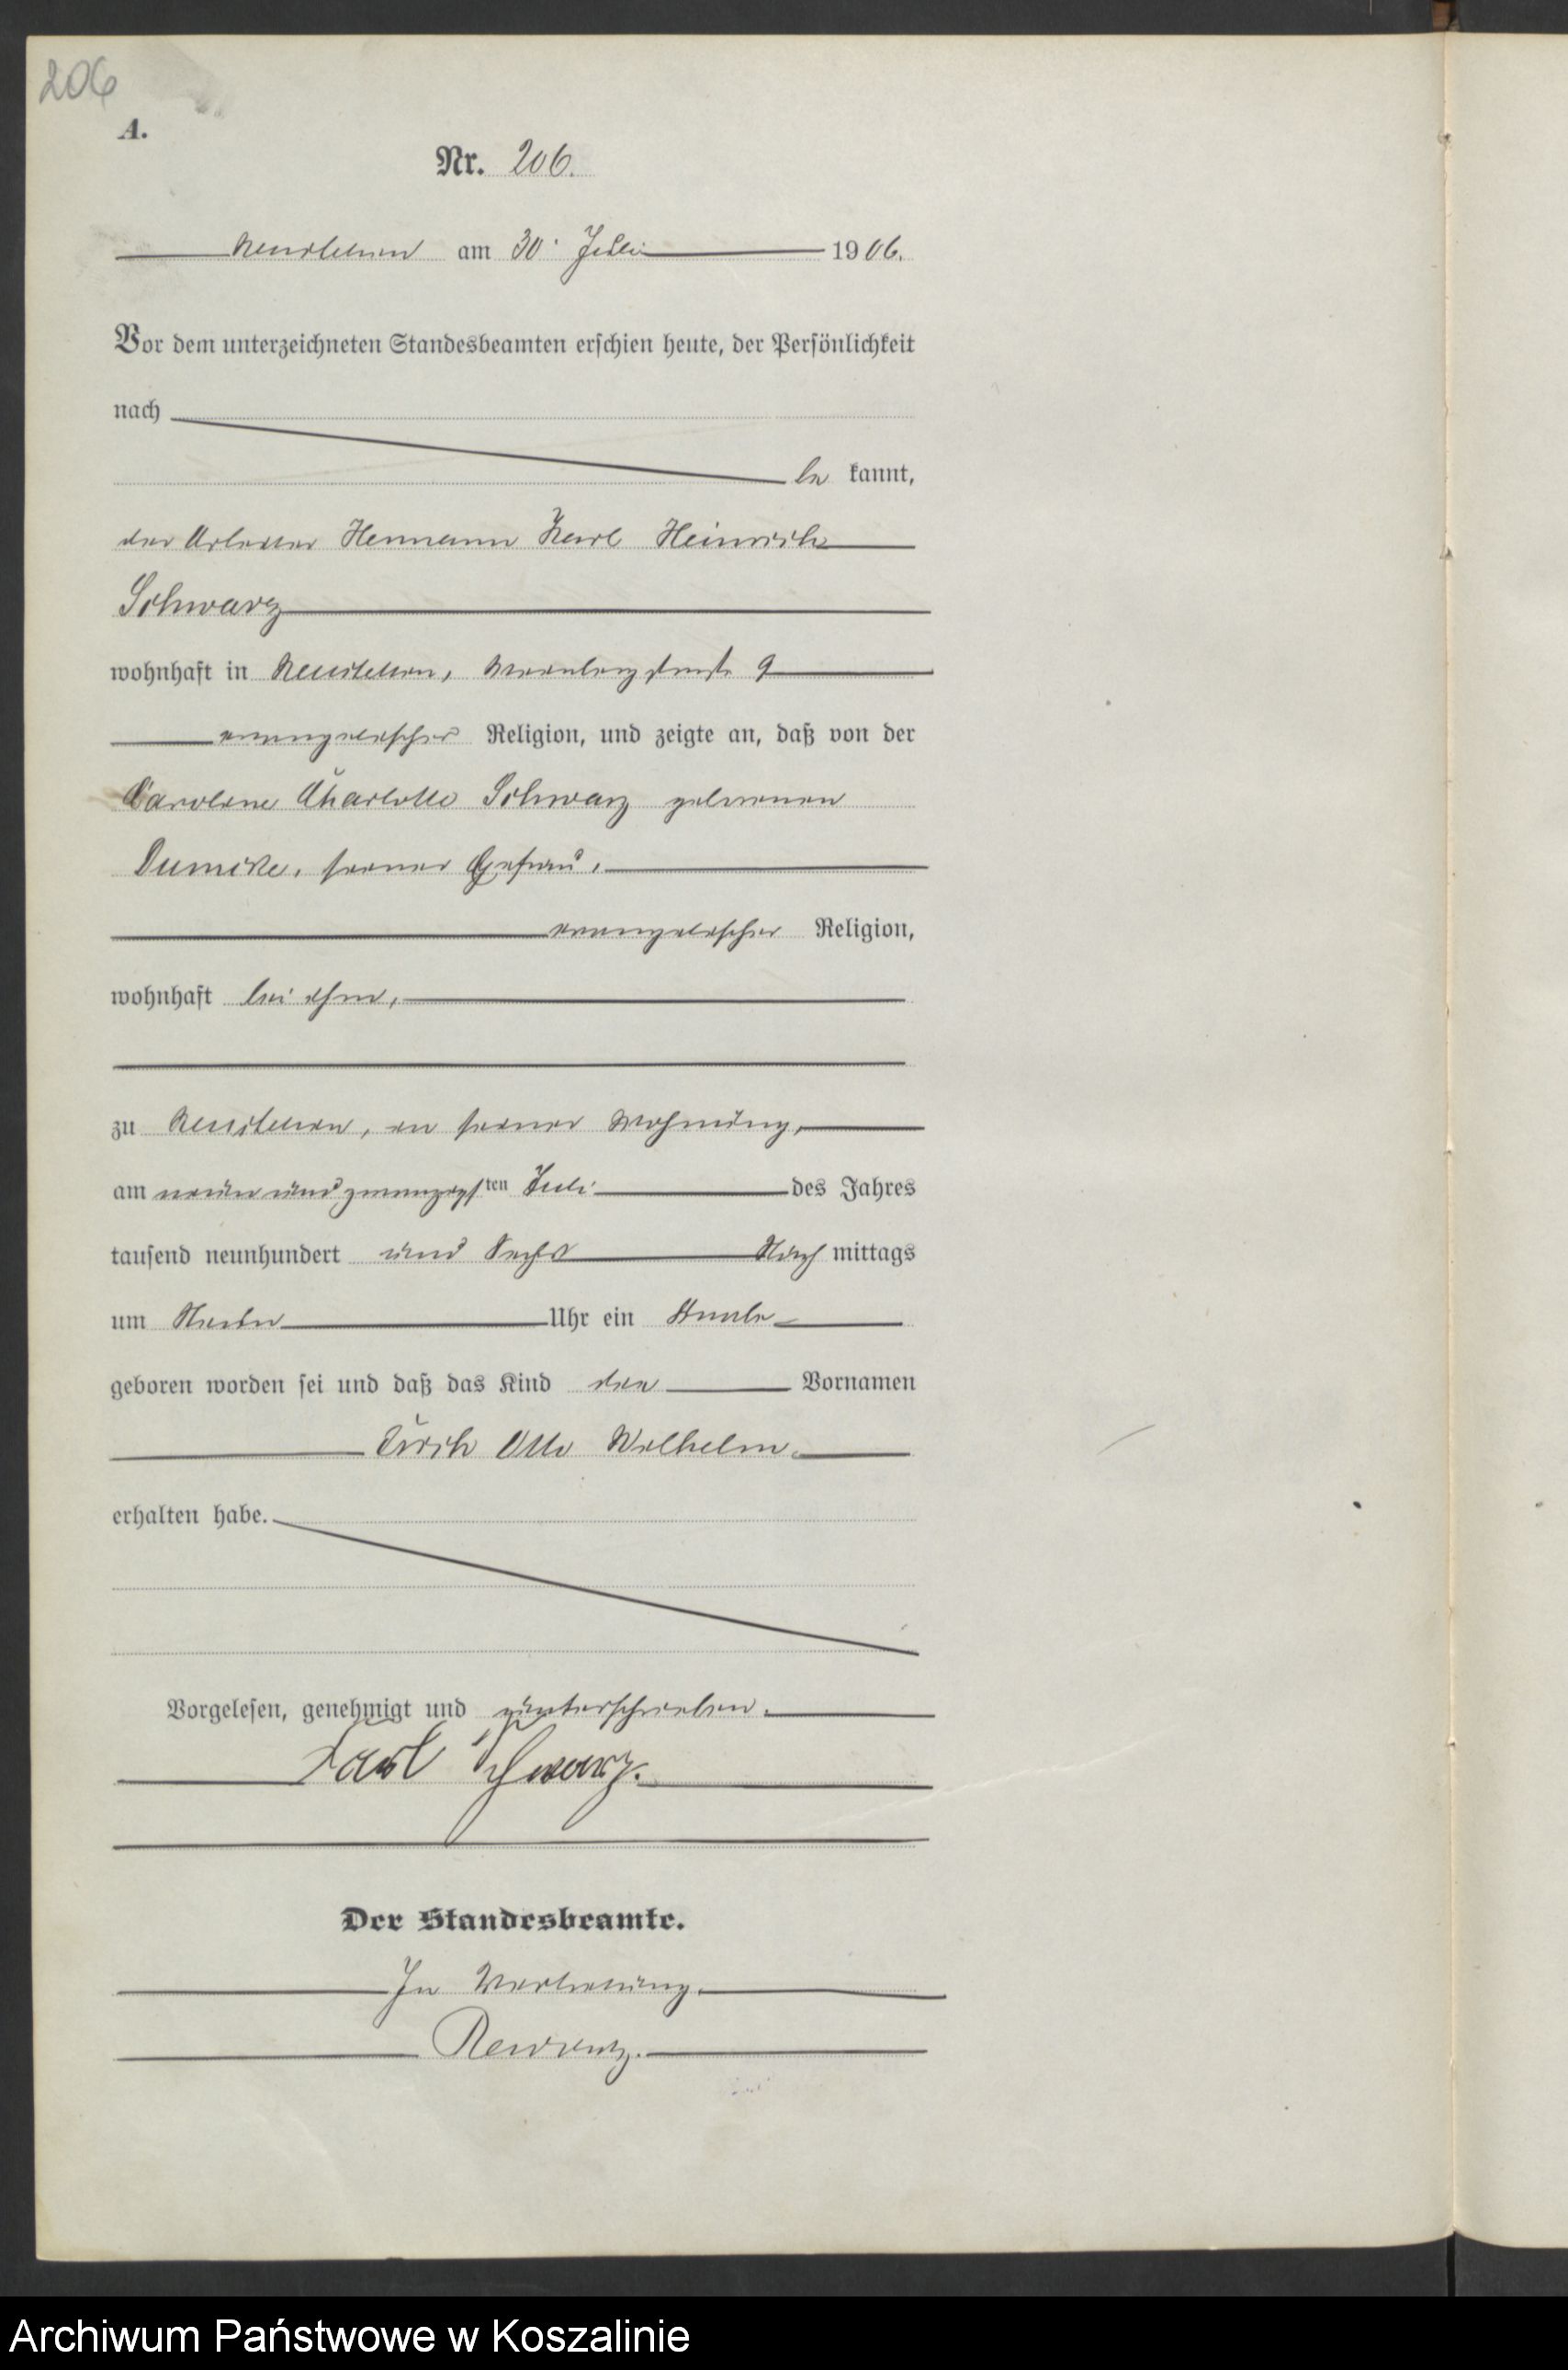 206
A.
Nr. 206.
Neustettin am 30. Juli 1906.
Vor dem unterzeichneten Standesbeamten erschien heute, der Persönlichkeit
nach
be kannt,
der Arbeiter Hermann Karl Heinrich
Schwarz
wohnhaft in Neustettin, 9
evangelischer Religion, und zeigte an, daß von der
Caroline Charlotte Schwarz geborenen
Dumcke, seiner Ehefrau,
evangelischer Religion,
wohnhaft bei ihm,
zu Neustettin, in seiner Wohnung,
am neun und zwanzigsten Juli des Jahres
tausend neunhundert und Sechs Nach mittags
um Uhr ein Knabe
geboren worden sei und daß das Kind die Vornamen
Erich Otto Wilhelm
erhalten habe.
Vorgelesen, genehmigt und unterschrieben.
Karl Schwarz.
Der Standesbeamte.
In Vertretung.
Archiwum Państwowe w Koszalinie